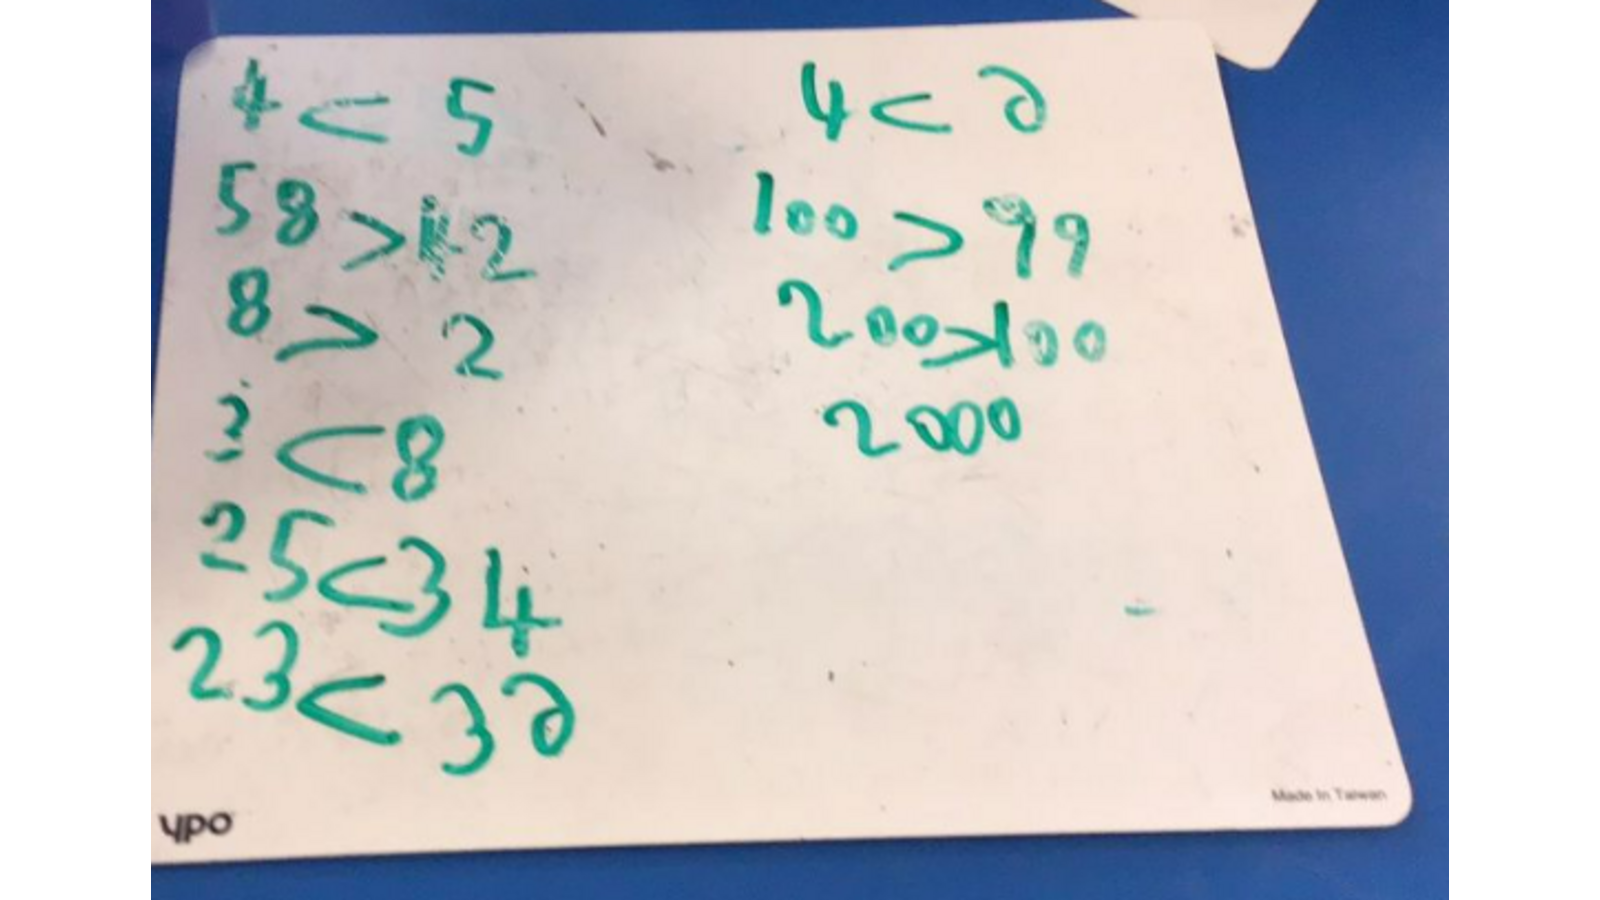 4 < 5
58 > 2
8 > 2
2 < 8
25 < 34
23 < 36
4 < 6
100 > 99
200 > 100
2000
ypo
Made In Taiwan